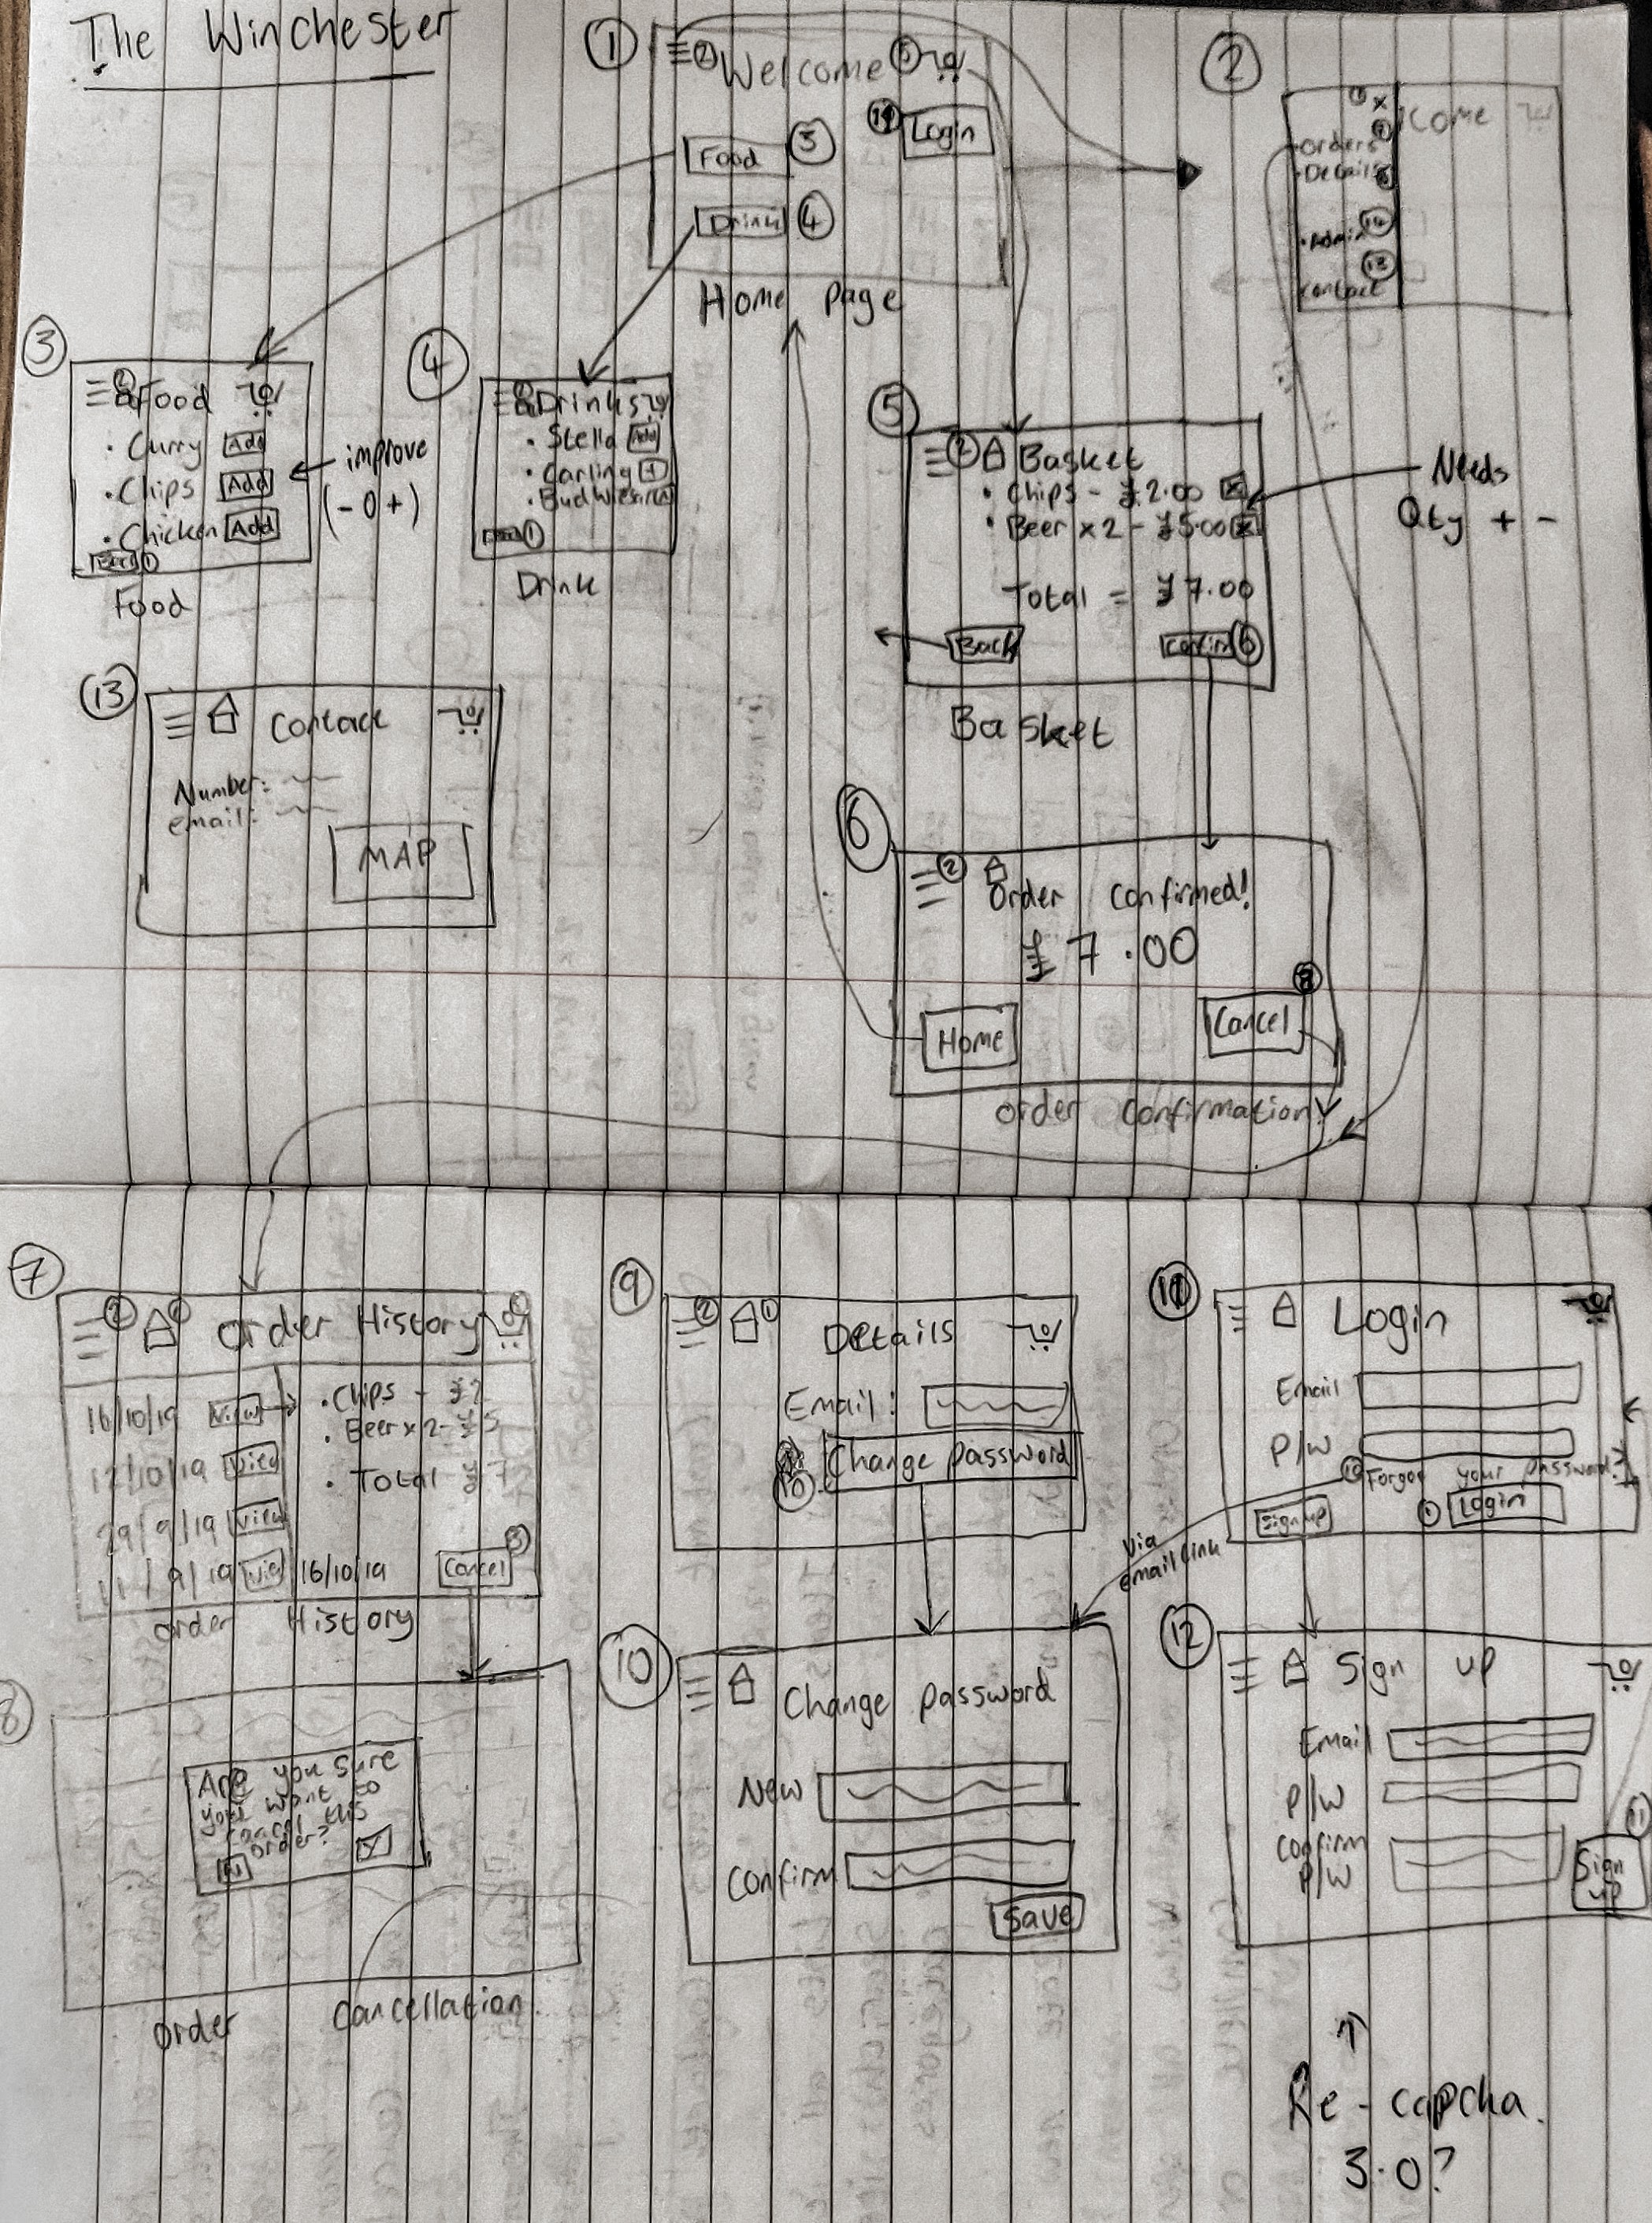 The Winchester
1
2 Welcome 5
11 Login
Food 3
Drink 4
Home Page
2
1 x
come
Orders 7
Details 9
Admin 14
13
Contact
3
2 Food
Curry Add
Chips Add
Chicken Add
Back 1
Food
improve
(- 0 +)
4
2 Drinks
Stella Add
Carling +
Budweiser A
1
Drink
5
2 Basket
Chips - £2.00 x
Beer x 2 - £5.00 x
Total = £7.00
Back Confirm 6
Basket
Needs
Qty + -
13
Contact
Number:
email:
MAP
6
2
Order Confirmed!
£7.00
Home Cancel
Order Confirmation
7
2 1 Order History
16/10/19 View
12/10/19 View
29/9/19 View
11/9/19 View
Chips - £2
Beer x 2 - £5
Total £7
16/10/19 Cancel 8
Order History
8
Are you sure
you want to
cancel this
order?
N Y
Order Cancellation
9
2 1 Details
Email:
10 Change Password
10
Change Password
New
Confirm
Save
11
Login
Email
P/W
10 Forgot your password?
Sign up 1 Login
Via
email link
12
Sign up
Email
P/W
Confirm
P/W
11
Sign
up
Re-capcha
3.0?